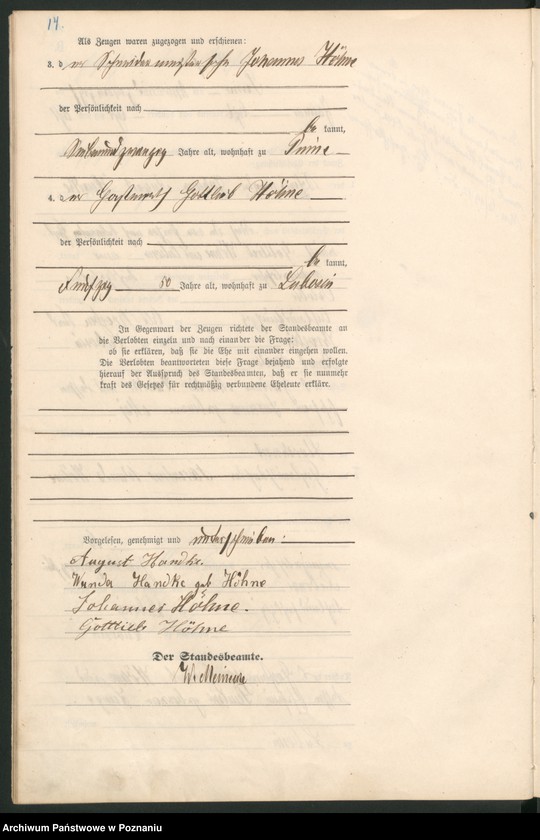 14.
Als Zeugen waren zugezogen und erschienen:
3. der Schneidermeister Johannes Höhne
der Persönlichkeit nach
be kannt,
Siebenundzwanzig Jahre alt, wohnhaft zu Pinne
4. der Gastwirth Gottlieb Höhne
der Persönlichkeit nach
be kannt,
Fünfzig 50 Jahre alt, wohnhaft zu Lubosin
In Gegenwart der Zeugen richtete der Standesbeamte an
die Verlobten einzeln und nach einander die Frage:
ob sie erklären, daß sie die Ehe mit einander eingehen wollen.
Die Verlobten beantworteten diese Frage bejahend und erfolgte
hierauf der Ausspruch des Standesbeamten, daß er sie nunmehr
kraft des Gesetzes für rechtmäßig verbundene Eheleute erkläre.
Vorgelesen, genehmigt und unterschrieben:
August Handke.
Wanda Handke geb Höhne
Johannes Höhne.
Gottlieb Höhne
Der Standesbeamte.
Archiwum Państwowe w Poznaniu